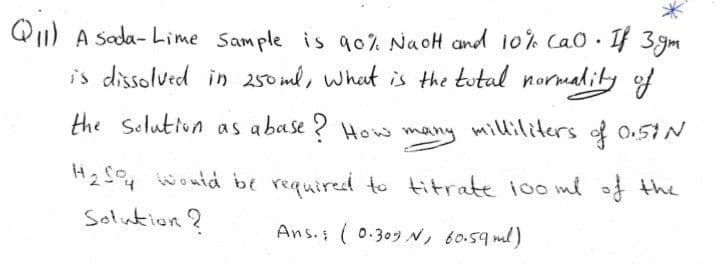 Q11) A Soda-Lime Sample is 90% NaOH and 10% CaO. If 3gm
is dissolved in 250 ml, what is the total normality of
the Solution as a base? How many milliliters of 0.51 N
H2SO4 would be required to titrate 100 ml of the
Solution?
Ans.: ( 0.309 N, 60.59 ml)